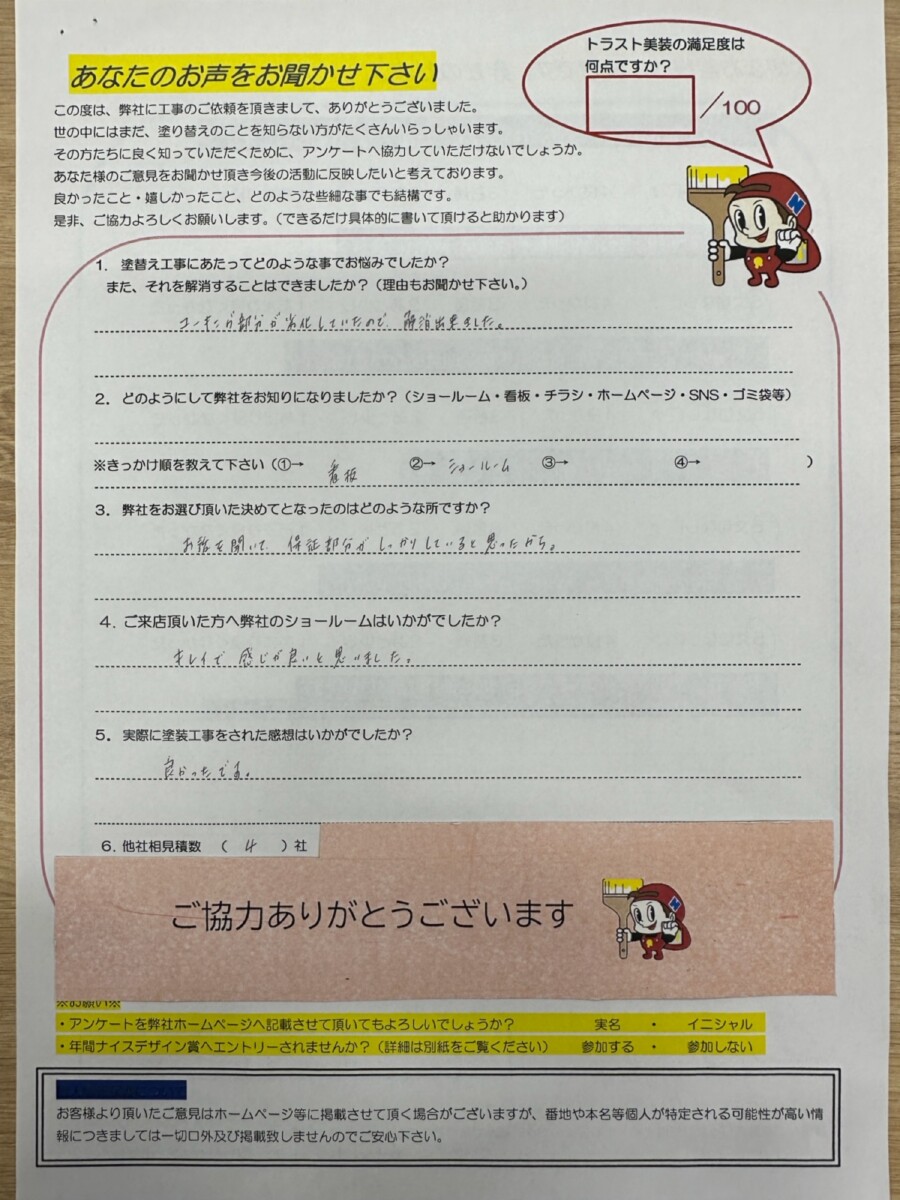 あなたのお声をお聞かせ下さい
トラスト美装の満足度は
何点ですか？
／100
この度は、弊社に工事のご依頼を頂きまして、ありがとうございました。
世の中にはまだ、塗り替えのことを知らない方がたくさんいらっしゃいます。
その方たちに良く知っていただくために、アンケートへ協力していただけないでしょうか。
あなた様のご意見をお聞かせ頂き今後の活動に反映したいと考えております。
良かったこと・嬉しかったこと、どのような些細な事でも結構です。
是非、ご協力よろしくお願いします。（できるだけ具体的に書いて頂けると助かります）
1. 塗替え工事にあたってどのような事でお悩みでしたか？
また、それを解消することはできましたか？（理由もお聞かせ下さい。）
コーキング部分が劣化していたので、解消出来ました。
2. どのようにして弊社をお知りになりましたか？（ショールーム・看板・チラシ・ホームページ・SNS・ゴミ袋等）
※きっかけ順を教えて下さい（①→ 看板 ②→ ショールーム ③→ ④→ ）
3. 弊社をお選び頂いた決めてとなったのはどのような所ですか？
お話を聞いて、保証部分がしっかりしていると思ったから。
4. ご来店頂いた方へ弊社のショールームはいかがでしたか？
キレイで感じが良いと思いました。
5. 実際に塗装工事をされた感想はいかがでしたか？
良かったです。
6. 他社相見積数 （ 4 ）社
ご協力ありがとうございます
※お願い※
・アンケートを弊社ホームページへ記載させて頂いてもよろしいでしょうか？ 実名 ・ イニシャル
・年間ナイスデザイン賞へエントリーされませんか？（詳細は別紙をご覧ください） 参加する ・ 参加しない
お客様より頂いたご意見はホームページ等に掲載させて頂く場合がございますが、番地や本名等個人が特定される可能性が高い情
報につきましては一切口外及び掲載致しませんのでご安心下さい。